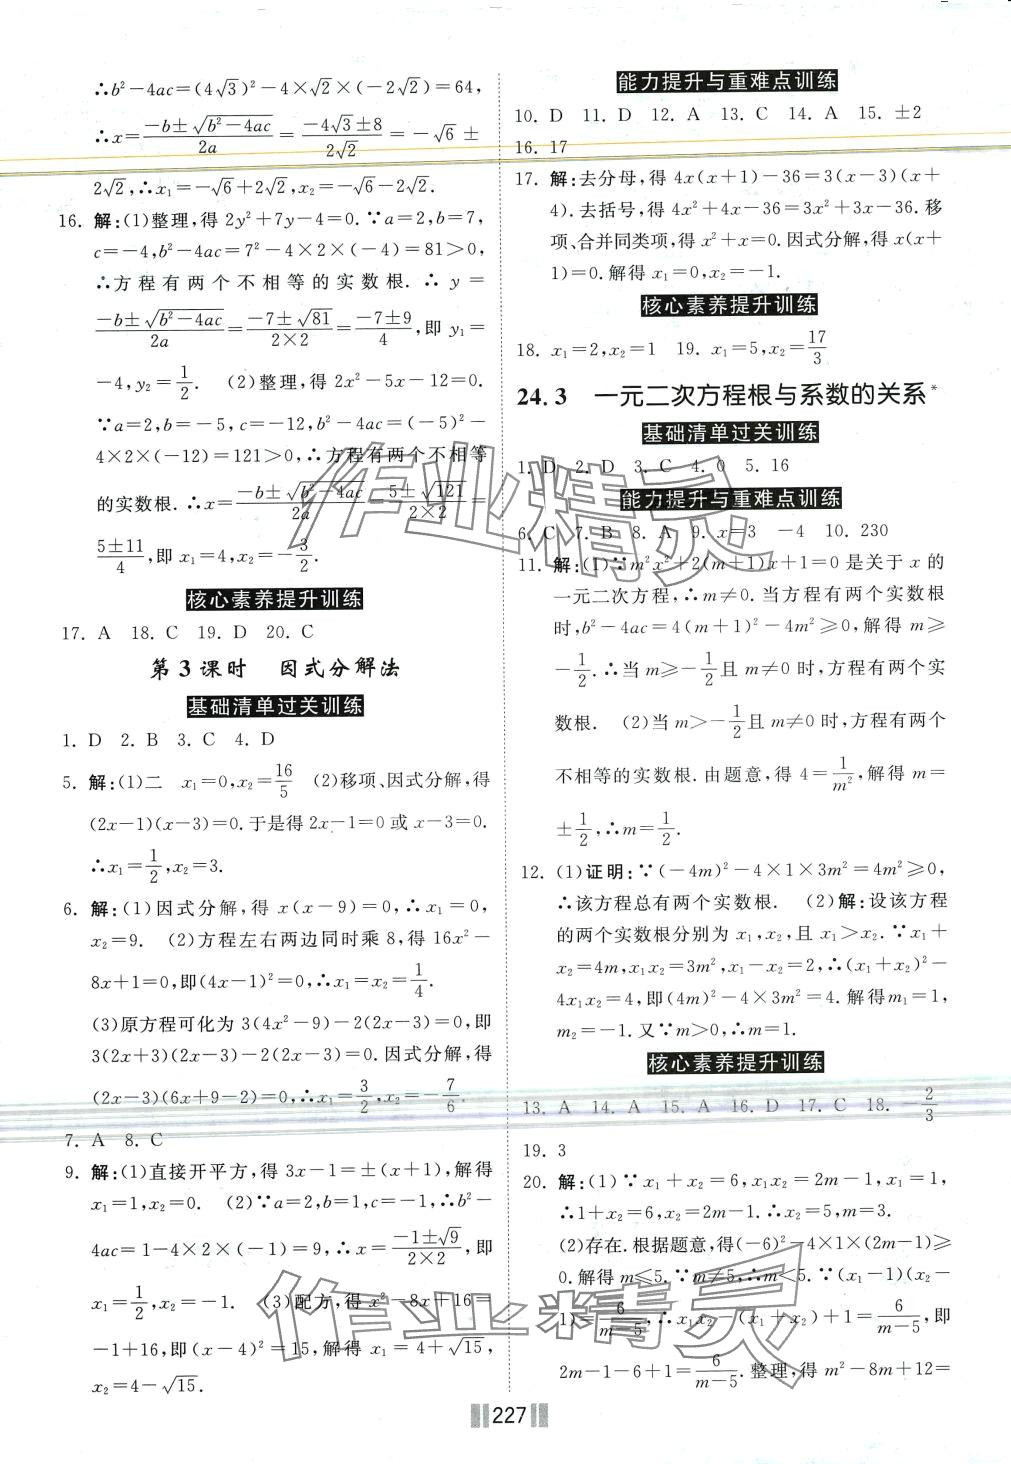 ∴b²−4ac=(4√3)²−4×√2×(−2√2)=64,
∴x=(−b±√(b²−4ac))/2a=(−4√3±8)/2√2=−√6±
2√2,∴x₁=−√6+2√2,x₂=−√6−2√2.
16. 解:(1)整理,得2y²+7y−4=0.∵a=2,b=7,
c=−4,b²−4ac=7²−4×2×(−4)=81>0,
∴方程有两个不相等的实数根.∴y=
(−b±√(b²−4ac))/2a=(−7±√81)/(2×2)=(−7±9)/4,即y₁=
−4,y₂=1/2. (2)整理,得2x²−5x−12=0.
∵a=2,b=−5,c=−12,∴b²−4ac=(−5)²−
4×2×(−12)=121>0,∴方程有两个不相等
的实数根.∴x=(−b±√(b²−4ac))/2a=(5±√121)/(2×2)=
(5±11)/4,即x₁=4,x₂=−3/2.
核心素养提升训练
17. A 18. C 19. D 20. C
第3课时 因式分解法
基础清单过关训练
1. D 2. B 3. C 4. D
5. 解:(1)二 x₁=0,x₂=16/5 (2)移项、因式分解,得
(2x−1)(x−3)=0.于是得2x−1=0或x−3=0.
∴x₁=1/2,x₂=3.
6. 解:(1)因式分解,得x(x−9)=0,∴x₁=0,
x₂=9. (2)方程左右两边同时乘8,得16x²−
8x+1=0,即(4x−1)²=0,∴x₁=x₂=1/4.
(3)原方程可化为3(4x²−9)−2(2x−3)=0,即
3(2x+3)(2x−3)−2(2x−3)=0.因式分解,得
(2x−3)(6x+9−2)=0,∴x₁=3/2,x₂=−7/6.
7. A 8. C
9. 解:(1)直接开平方,得3x−1=±(x+1),解得
x₁=1,x₂=0. (2)∵a=2,b=1,c=−1,∴b²−
4ac=1−4×2×(−1)=9,∴x=(−1±√9)/(2×2),即
x₁=1/2,x₂=−1. (3)配方,得x²−8x+16=
−1+16,即(x−4)²=15,解得x₁=4+√15,
x₂=4−√15.
能力提升与重难点训练
10. D 11. D 12. A 13. C 14. A 15. ±2
16. 17
17. 解:去分母,得4x(x+1)−36=3(x−3)(x+
4).去括号,得4x²+4x−36=3x²+3x−36.移
项、合并同类项,得x²+x=0.因式分解,得x(x+
1)=0.解得x₁=0,x₂=−1.
核心素养提升训练
18. x₁=2,x₂=1 19. x₁=5,x₂=17/3
24.3 一元二次方程根与系数的关系*
基础清单过关训练
1. D 2. D 3. C 4. 0 5. 16
能力提升与重难点训练
6. C 7. B 8. A 9. x=3 −4 10. 230
11. 解:(1)∵m²x²+2(m+1)x+1=0是关于x的
一元二次方程,∴m≠0.当方程有两个实数根
时,b²−4ac=4(m+1)²−4m²≥0,解得m≥
−1/2.∴当m≥−1/2且m≠0时,方程有两个实
数根. (2)当m>−1/2且m≠0时,方程有两个
不相等的实数根.由题意,得4=1/m²,解得m=
±1/2,∴m=1/2.
12. (1)证明:∵(−4m)²−4×1×3m²=4m²≥0,
∴该方程总有两个实数根. (2)解:设该方程
的两个实数根分别为x₁,x₂,且x₁>x₂.∵x₁+
x₂=4m,x₁x₂=3m²,x₁−x₂=2,∴(x₁+x₂)²−
4x₁x₂=4,即(4m)²−4×3m²=4.解得m₁=1,
m₂=−1.又∵m>0,∴m=1.
核心素养提升训练
13. A 14. A 15. A 16. D 17. C 18. −2/3
19. 3
20. 解:(1)∵x₁+x₂=6,x₁x₂=2m−1,x₁=1,
∴1+x₂=6,x₂=2m−1.∴x₂=5,m=3.
(2)存在.根据题意,得(−6)²−4×1×(2m−1)≥
0.解得m≤5.∵m≠5,∴m<5.∵(x₁−1)(x₂−
1)=6/(m−5),∴x₁x₂−(x₁+x₂)+1=6/(m−5),即
2m−1−6+1=6/(m−5).整理,得m²−8m+12=
227
作业精灵
作业精灵